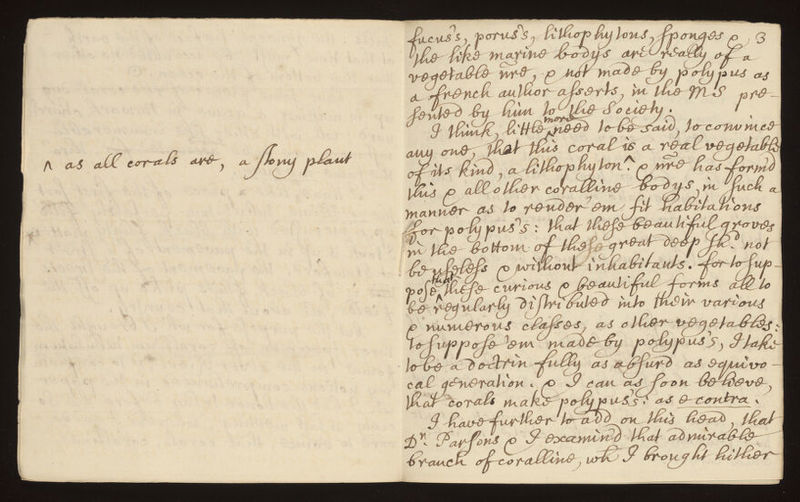 ^ as all corals are, a stony plant
3
fucus's, porus's, lithophytons, sponges &
the like marine bodys are really of a
vegetable nre, & not made by polypus as
a french author asserts, in the MS pre-
sented by him to the Society.
I think, little more need to be said, to convince
any one, that this coral is a real vegetable
of its kind, a lithophyton^. & nre has form'd
this & all other coralline bodys, in such a
manner as to render 'em fit habitations
for polypus's: that these beautiful groves
in the bottom of these great deep shd. not
be useless & without inhabitants. for to sup-
pose that^ these curious & beautiful forms all to
be regularly distributed into their various
& numerous classes, as other vegetables:
to suppose 'em made by polypus's, I take
to be a doctrin fully as absurd as equivo-
cal generation. & I can as soon believe,
that corals make polypus's: as e contra.
I have further to add on this head, that
Dr. Parsons & I examind that admirable
branch of coralline, wh I brought hither